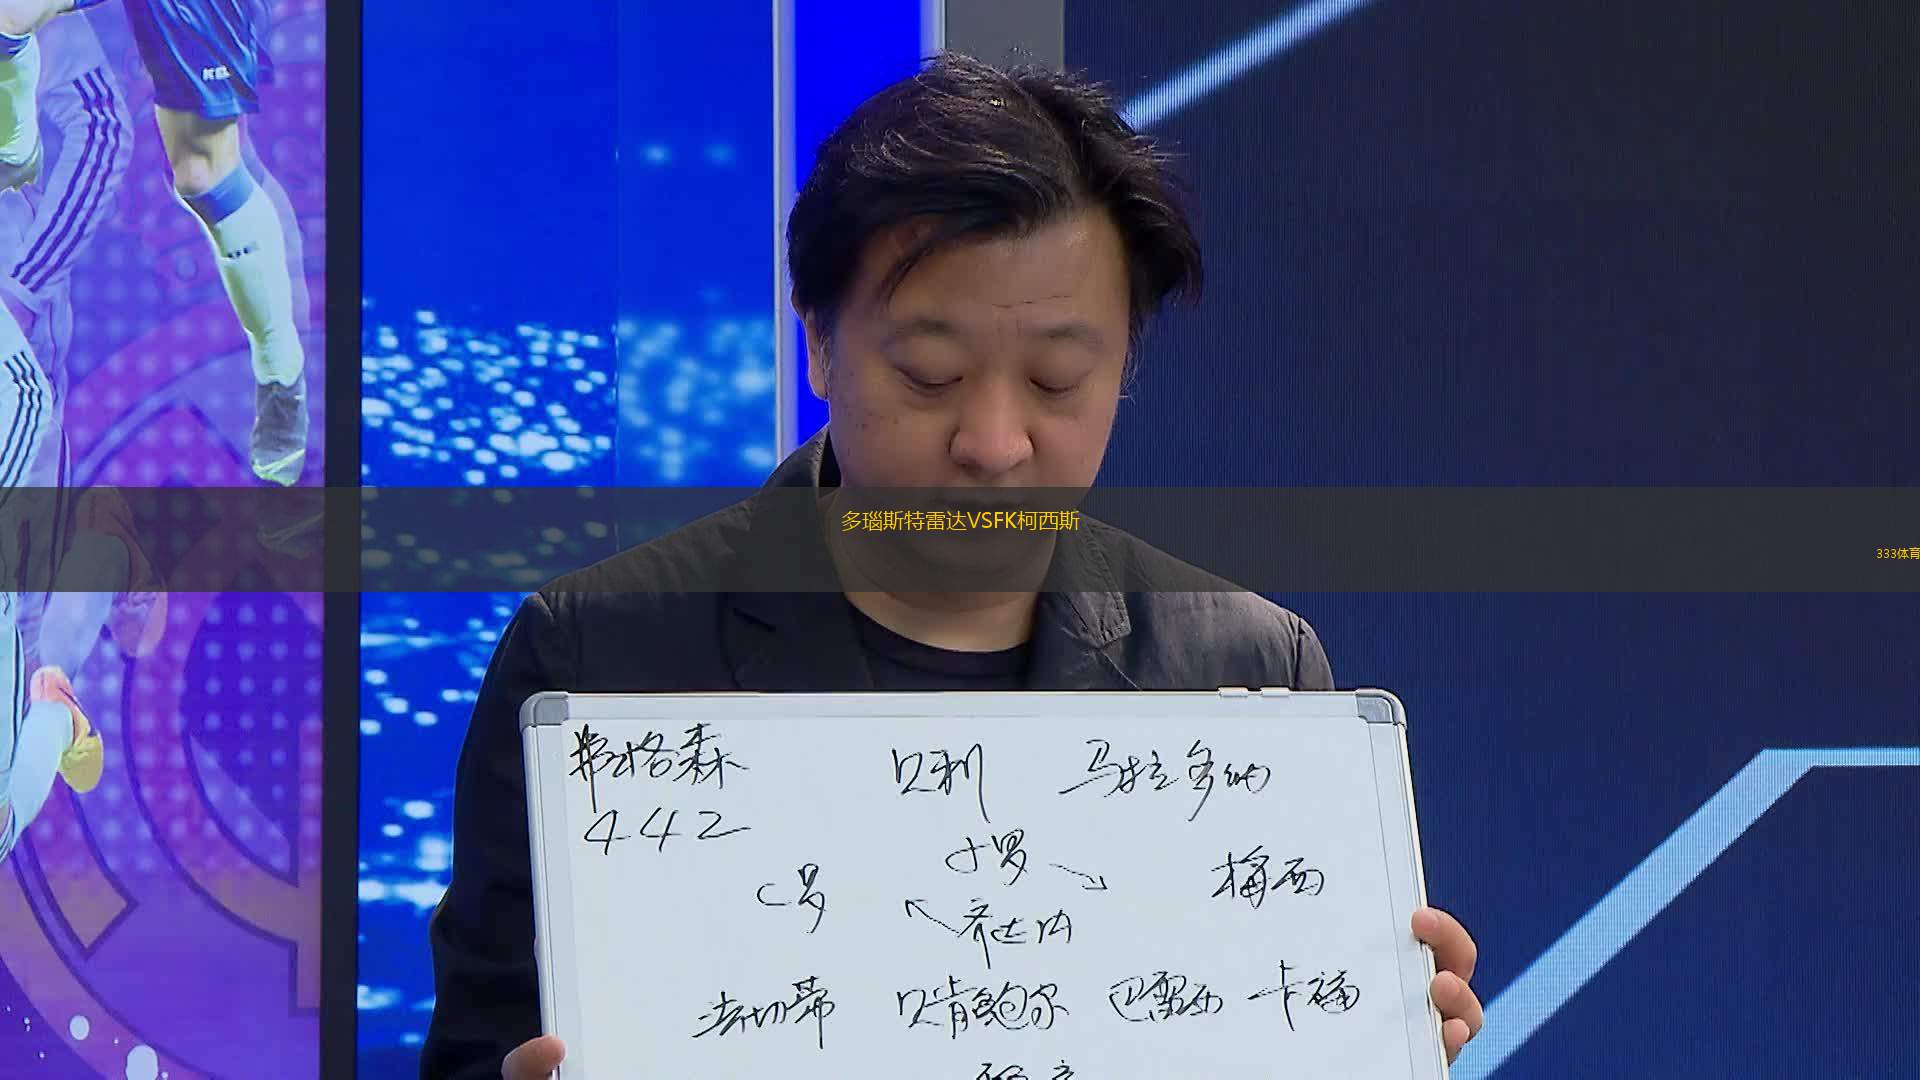 多瑙斯特雷达VSFK柯西斯
333体育
弗格森 贝利 马拉多纳
442
小罗
C罗 梅西
齐达内
法切蒂 贝肯鲍尔 巴雷西 卡福